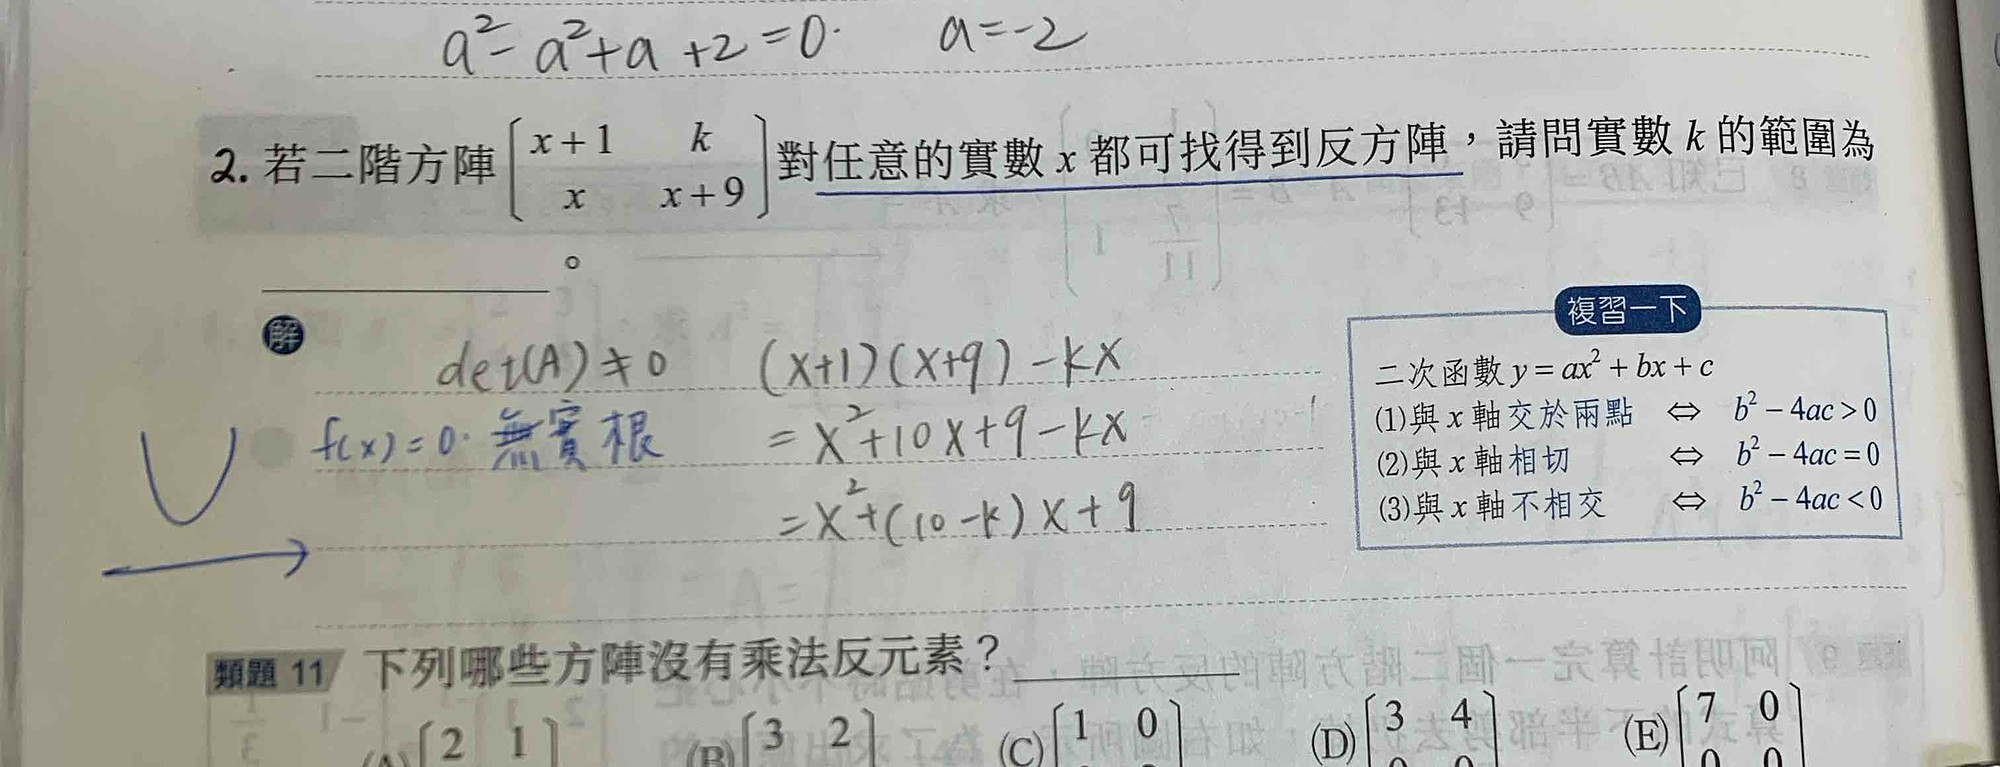 a²-a²+a+2=0. a=-2
2. 若二階方陣[x+1 k
x x+9]對任意的實數 x 都可找得到反方陣，請問實數 k 的範圍為
。
解
det(A)≠0 (x+1)(x+9)-kx
f(x)=0. 無實根 =x²+10x+9-kx
=x²+(10-k)x+9
複習一下
二次函數 y=ax²+bx+c
(1)與 x 軸交於兩點 ⇔ b²-4ac>0
(2)與 x 軸相切 ⇔ b²-4ac=0
(3)與 x 軸不相交 ⇔ b²-4ac<0
類題 11 下列哪些方陣沒有乘法反元素？
(A)[2 1] (B)[3 2] (C)[1 0] (D)[3 4] (E)[7 0]